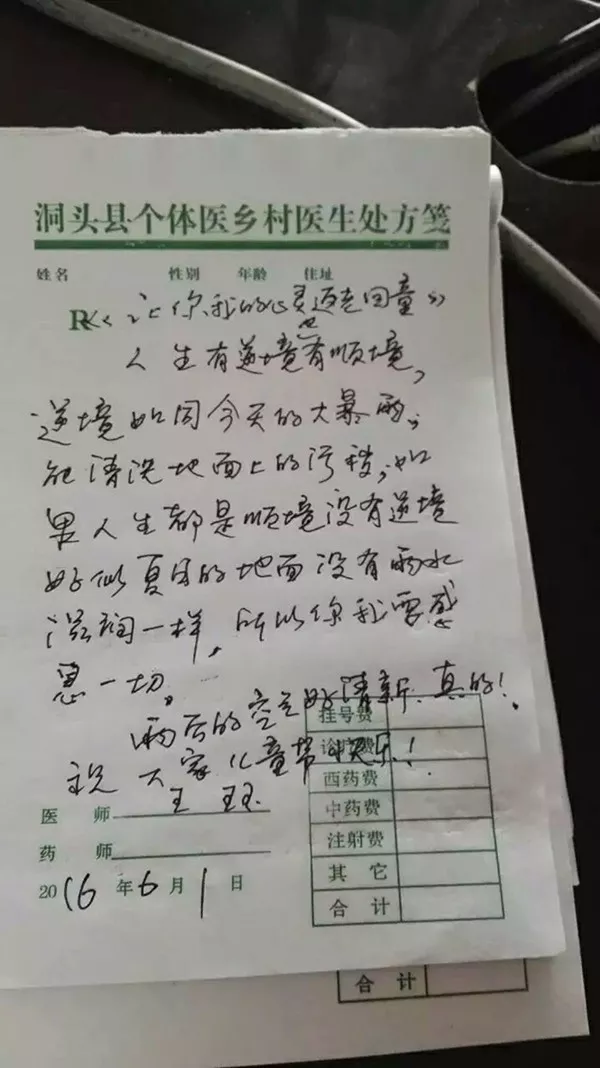 洞头县个体医乡村医生处方笺
姓名 性别 年龄 住址
R 《让你我的心灵返老回童》
人生有逆境也有顺境,
逆境如同今天的大暴雨,
能清洗地面上的污秽,如
果人生都是顺境没有逆境
好似夏日的地面没有雨水
滋润一样,所以你我要感
恩一切。
雨后的空气好清新,真的!
祝大家儿童节快乐!
王
挂号费
诊疗费
西药费
中药费
注射费
其它
合计
医师
药师
2016年6月1日
合计